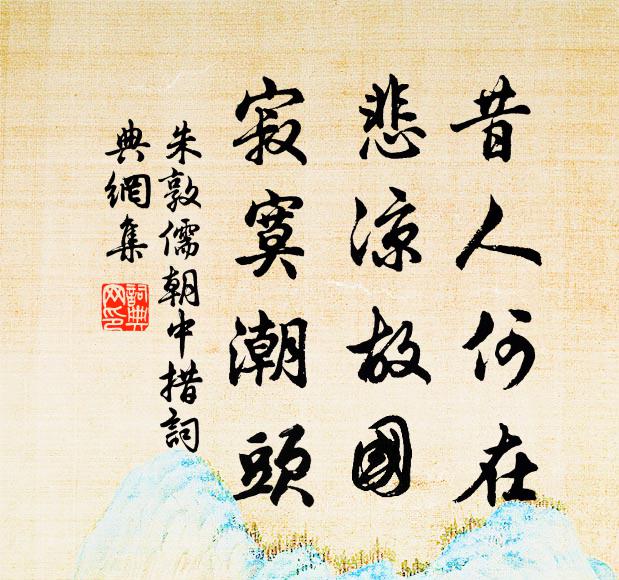 昔人何在
悲涼故國
寂寞潮頭
朱敦儒朝中措詞
典網集
詞典網印